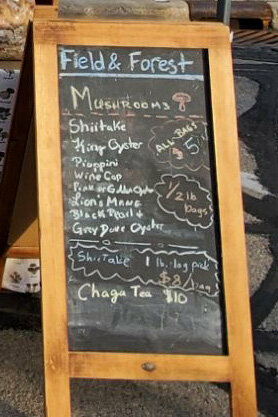 Field & Forest
MUSHROOMS
Shiitake
King Oyster
Pioppini
Wine Cap
Pink or Golden Oyster
Lion's Mane
Black Pearl +
Grey Dove Oyster
ALL BAGS
$5
1/2 lb
bags
Shiitake 1 lb. log pack
$8/bag
Chaga Tea $10